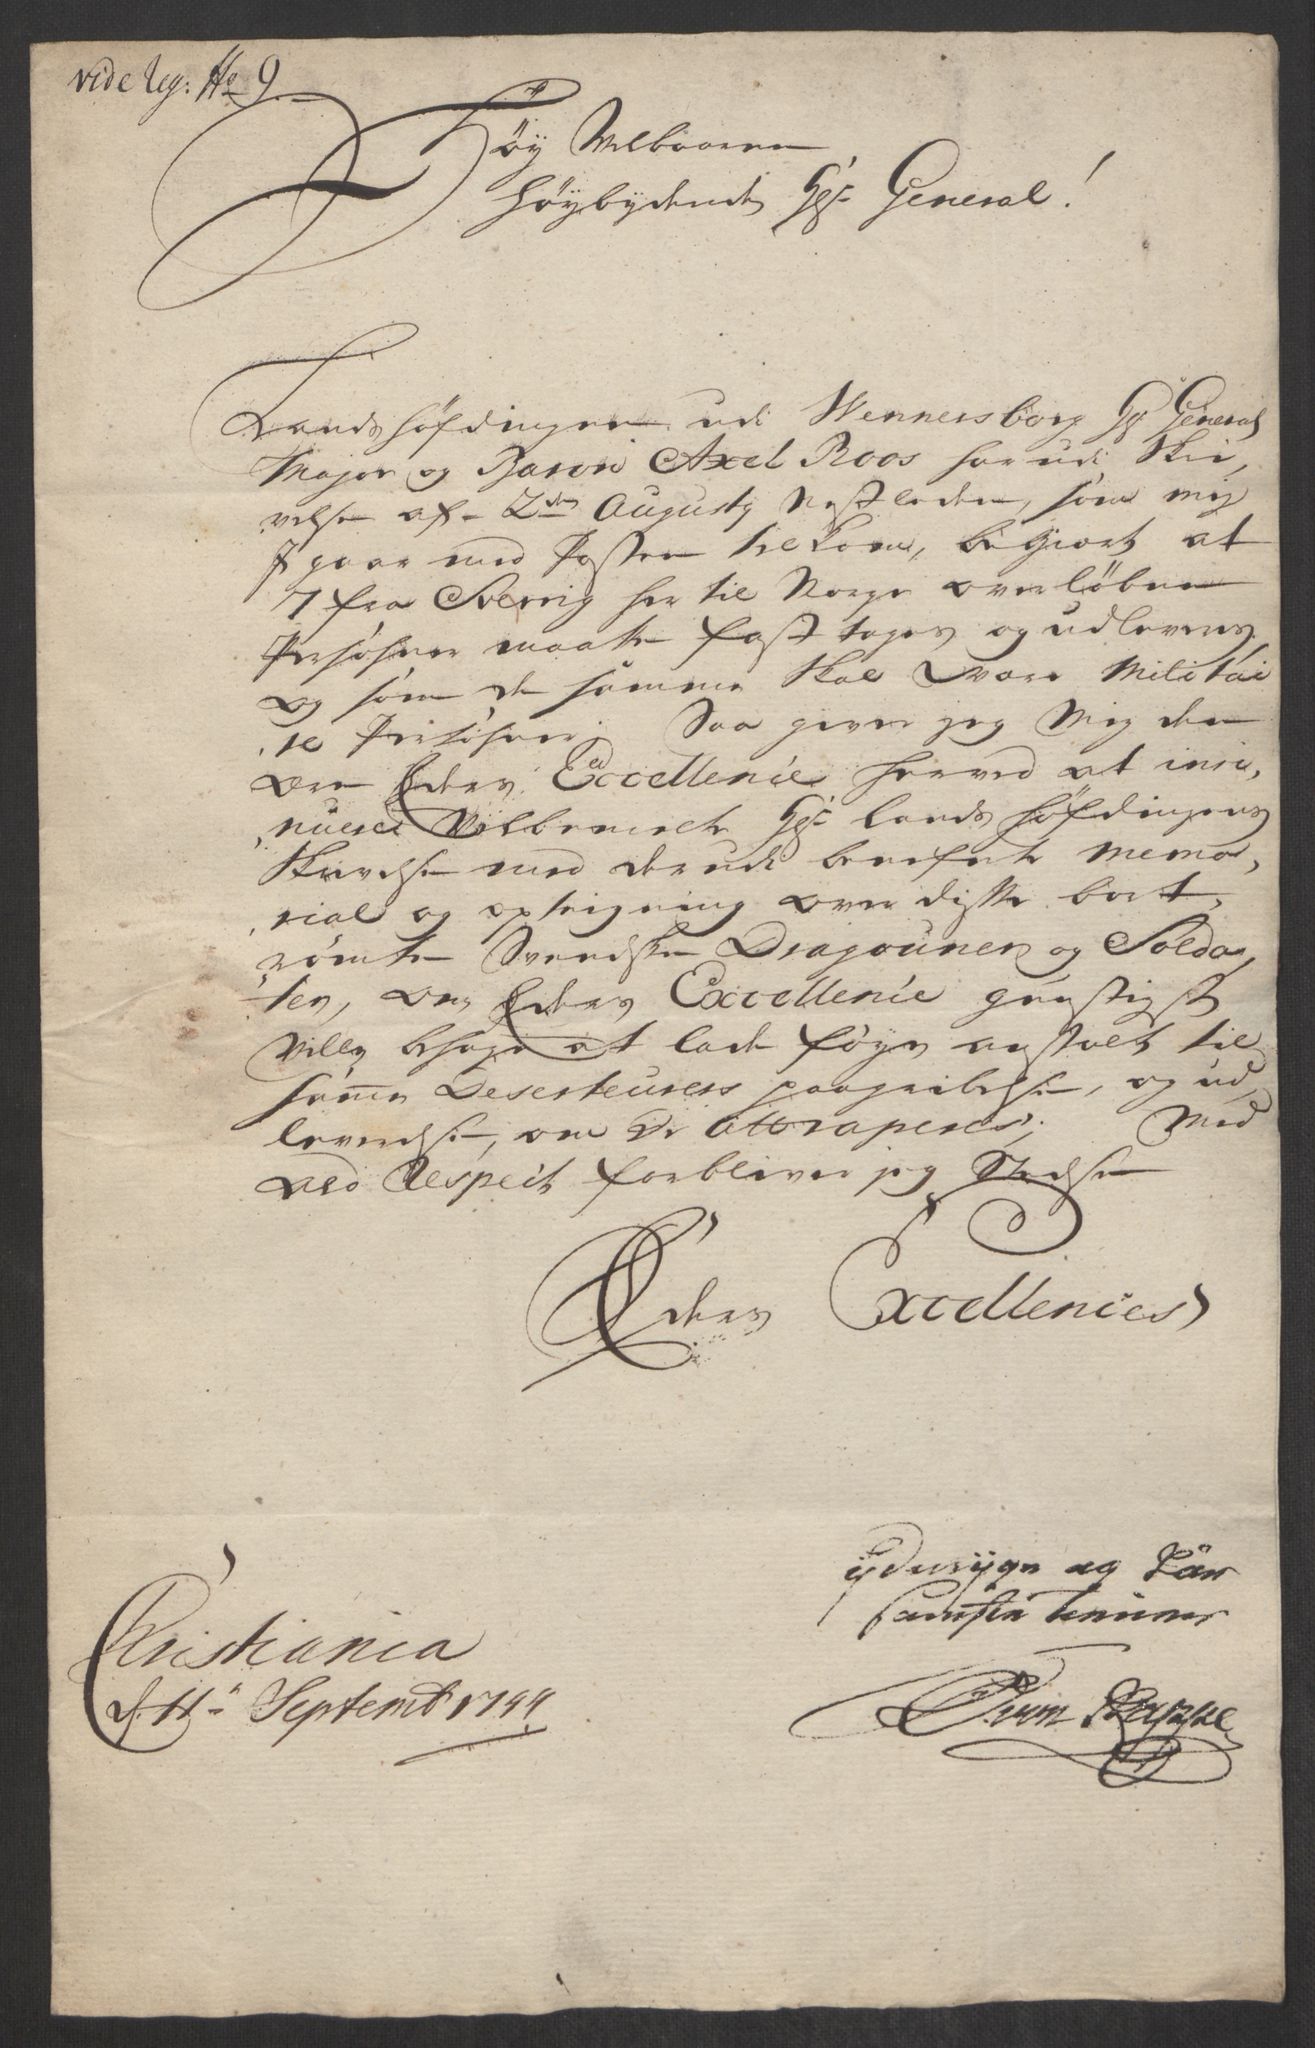 vide reg: No 9
Höy Velbaarne
Höybydende Hr General!
Landshöfdingen udi Wennersborg Hr General
Major og Baron Axel Roos har udi Skri,
velse af 2den Augusty Nestleden, som mig
I gaar med Posten tilkom, begiert at
7 fra Sverrig her til Norge overløbne
Persohner maatte fast tages og udleveres,
og som de samme skal være Militai
,re Persohner; Saa giver jeg Mig den
ære Eders Excellence herved at insi,
,nuere Velbemelte Hr Landshöfdingens
Skrivelse med derudi benefnte Memo,
,rial og opteigning over disse bort,
römte Svendske Dragouner og Solda,
ter, om Eders Excellence gunstigst
ville behage at lade föye anstalt til
samme Deserteurers paagribelse, og ud,
leverelse, om de attraperes; Med
ald Respect forbliver jeg Stedse
Eders Excellences
ydmyge og
tienner
Christiania
d. 11te Septembr 1744
Rappe